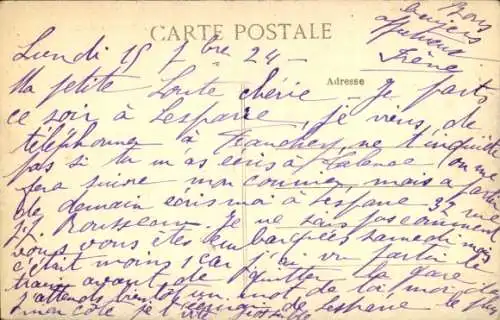 CARTE POSTALE
Bons
baisers
affectueux
Irène
Lundi 15 7bre 24 -
Adresse
Ma petite Loute chérie - Je pars
ce soir à Lesparre, je viens de
téléphoner à ne t'inquiète
pas si tu m'as écris à Talence on me
fera suivre mon courrier, mais à partir
de demain écris moi à Lesparre 37 rue
J.J. Rousseau. Je ne sais pas comment
vous vous êtes embarquées samedi mais
c'était moins 1 car j'ai vu partir le
avant de quitter la gare
j'attends bientôt un mot de toi, moi de
mon côté je t' de Lesparre le plus
vite possible